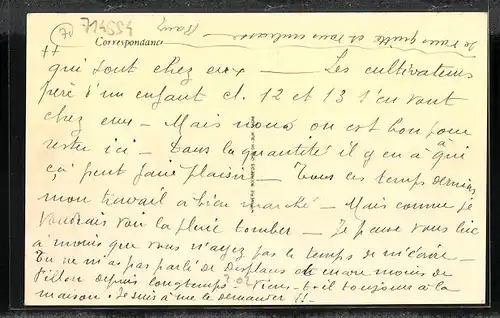 70
714554
Je vous quitte et vous embrasse
Correspondance
++
qui sont chez eux — Les cultivateurs
père d'un enfant cl. 12 et 13 s'en vont
chez eux — Mais nous on est bon pour
rester ici — Dans la quantité il y en a à qui
ça peut faire plaisir — Tous ces temps derniers
mon travail a bien marché — Mais comme je
voudrais voir la pluie tomber — Je pense vous lire
à moins que vous n'ayez pas le temps de m'écrire —
Tu ne m'as pas parlé de encore moins de
depuis longtemps — Viens-t-il toujours à la
maison. Je suis à me le demander !!